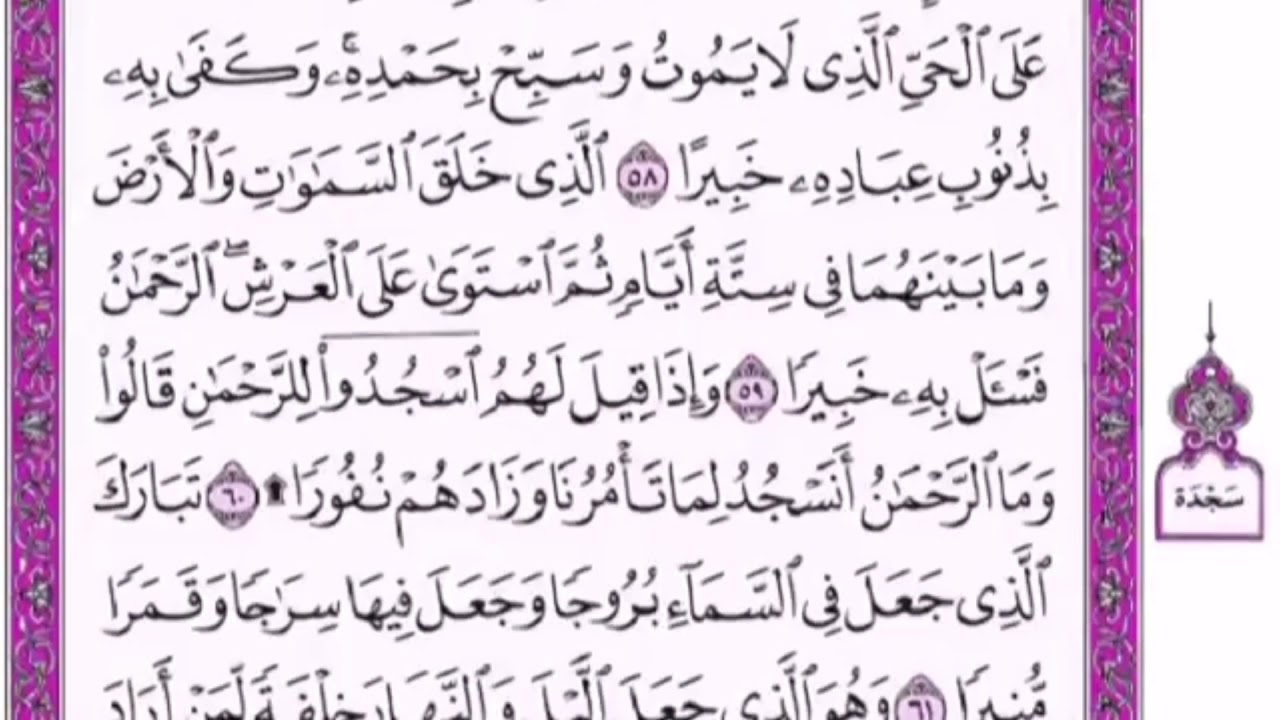 عَلَى ٱلْحَىِّ ٱلَّذِى لَا يَمُوتُ وَسَبِّحْ بِحَمْدِهِۦۚ وَكَفَىٰ بِهِۦ
بِذُنُوبِ عِبَادِهِۦ خَبِيرًا ٥٨ ٱلَّذِى خَلَقَ ٱلسَّمَٰوَٰتِ وَٱلْأَرْضَ
وَمَا بَيْنَهُمَا فِى سِتَّةِ أَيَّامٍ ثُمَّ ٱسْتَوَىٰ عَلَى ٱلْعَرْشِۖ ٱلرَّحْمَٰنُ
فَسْـَٔلْ بِهِۦ خَبِيرًا ٥٩ وَإِذَا قِيلَ لَهُمُ ٱسْجُدُوا۟ لِلرَّحْمَٰنِ قَالُوا۟
وَمَا ٱلرَّحْمَٰنُ أَنَسْجُدُ لِمَا تَأْمُرُنَا وَزَادَهُمْ نُفُورًا ۩ ٦٠ تَبَارَكَ
سَجْدَة
ٱلَّذِى جَعَلَ فِى ٱلسَّمَآءِ بُرُوجًا وَجَعَلَ فِيهَا سِرَٰجًا وَقَمَرًا
مُّنِيرًا ٦١ وَهُوَ ٱلَّذِى جَعَلَ ٱلَّيْلَ وَٱلنَّهَارَ خِلْفَةً لِّمَنْ أَرَادَ